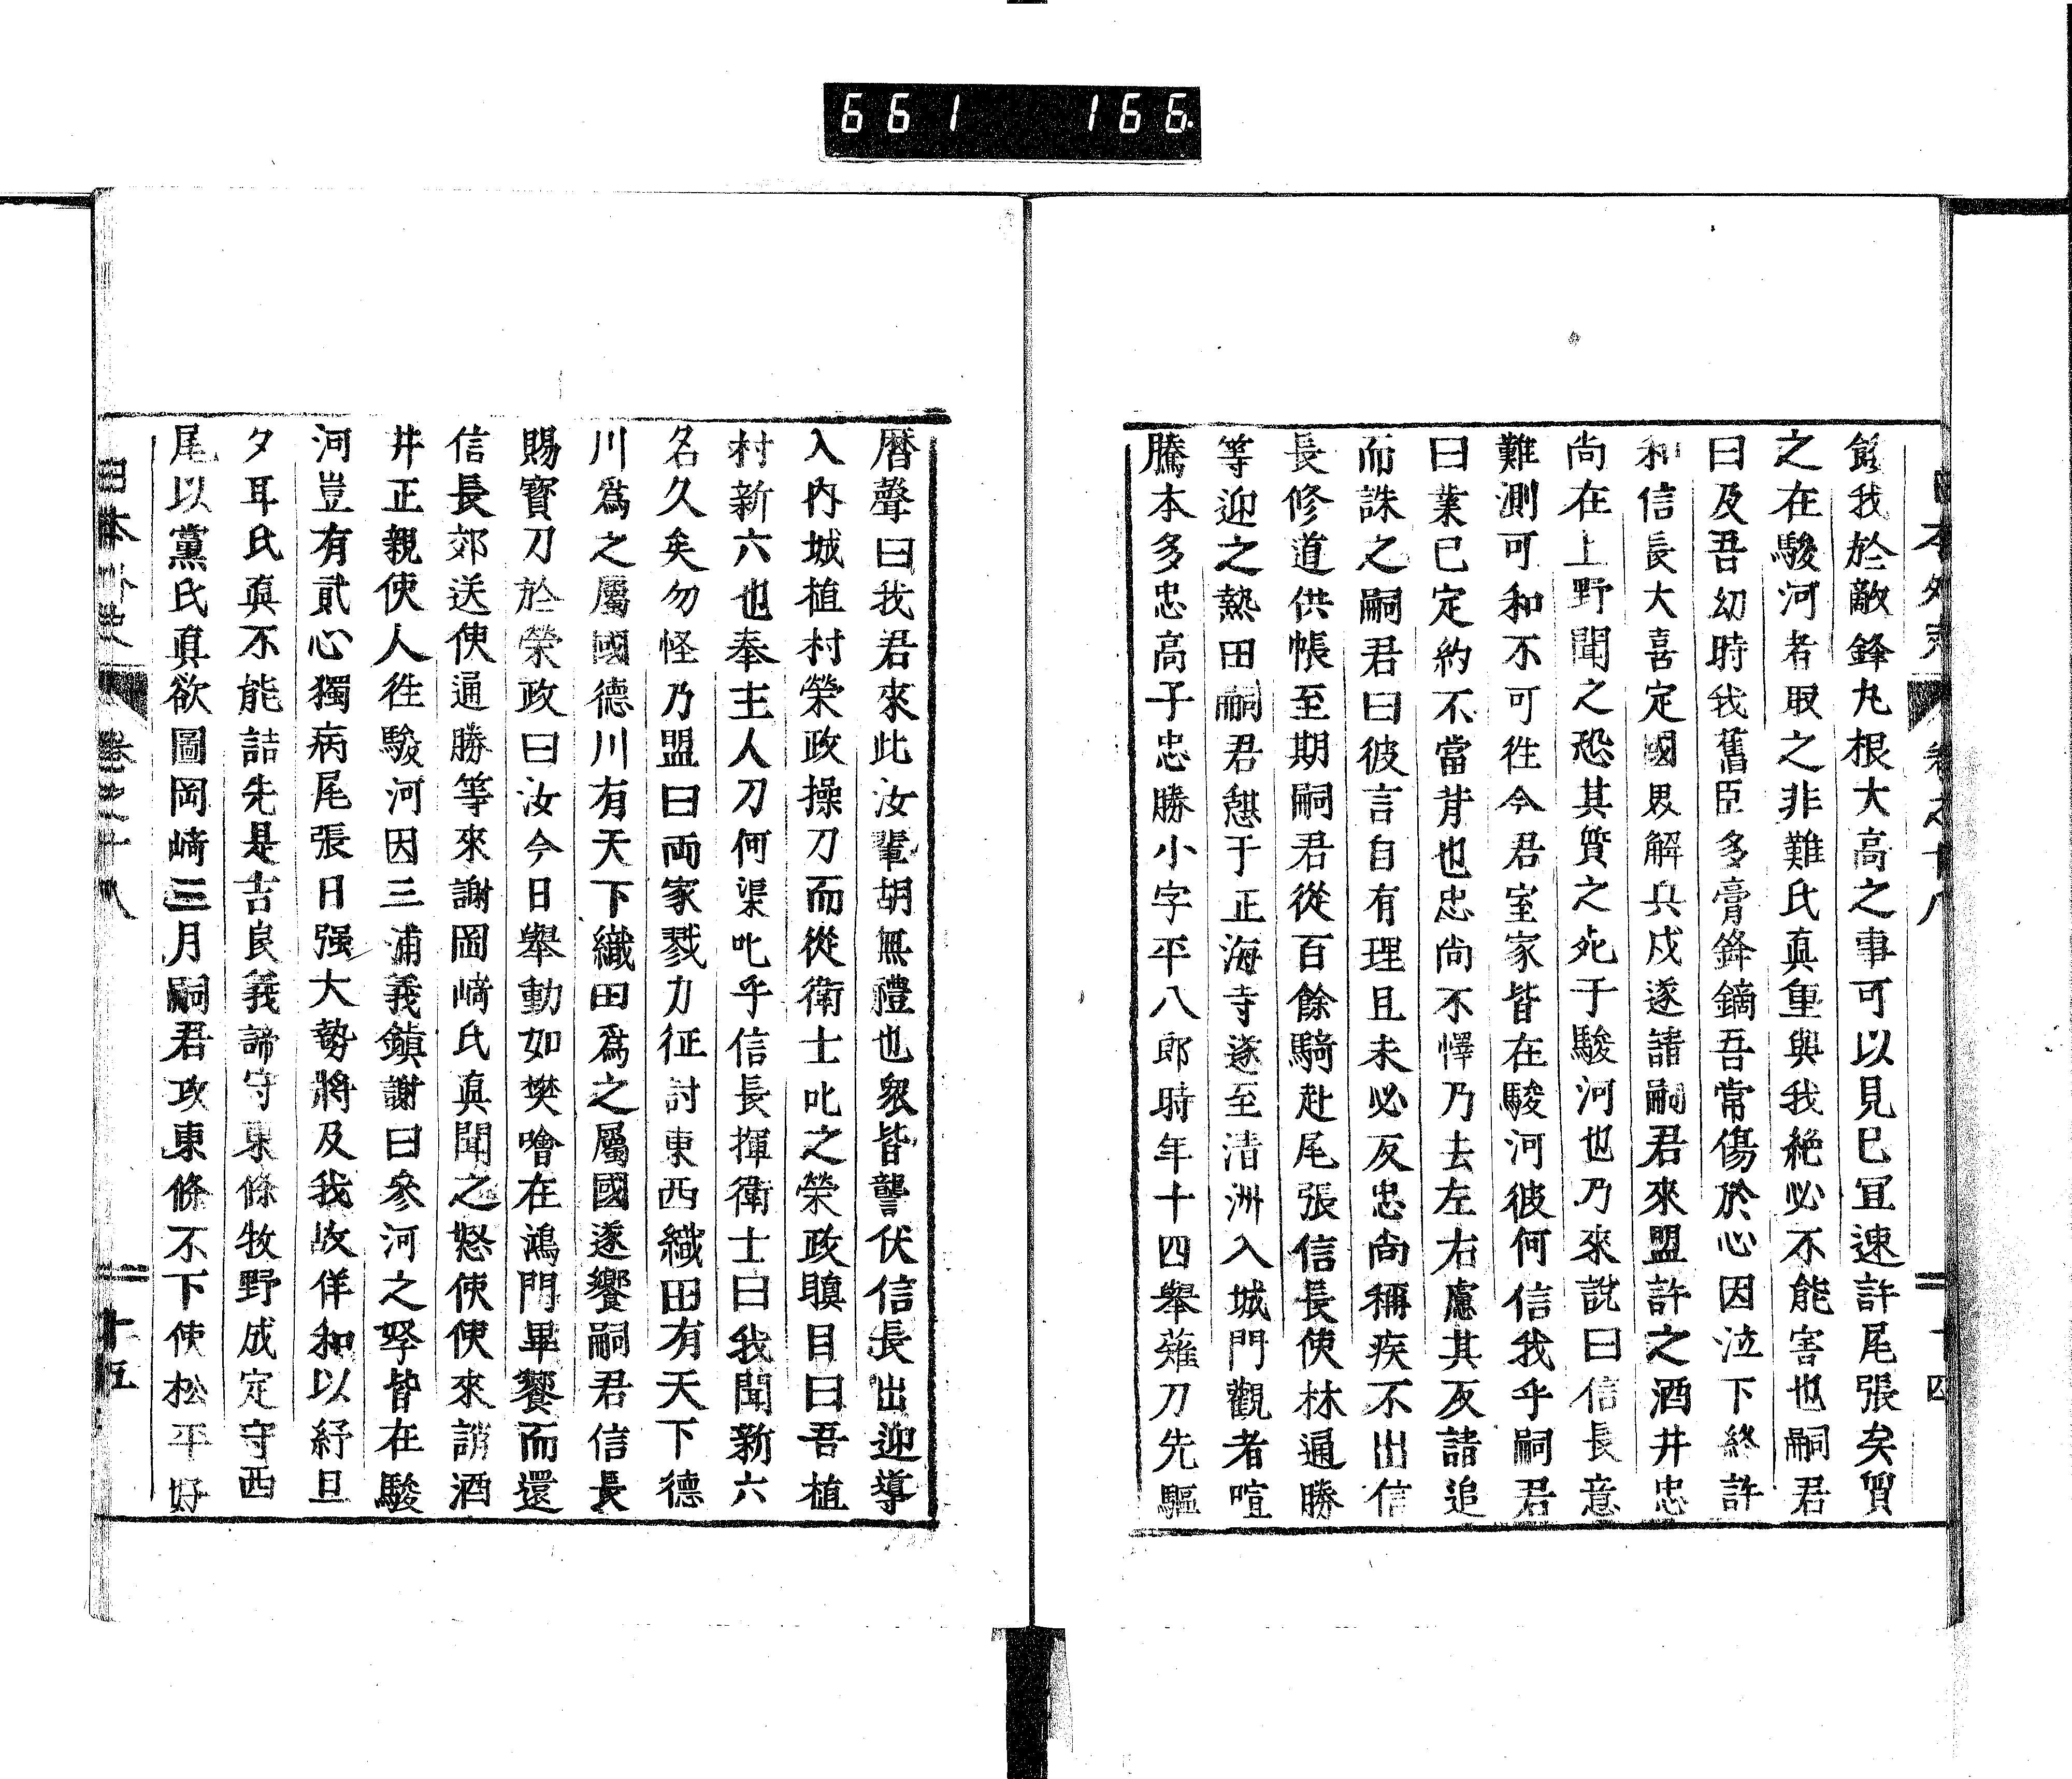 661 166.
日本外史 卷之十八 十四
餡我於敵鋒丸根大高之事可以見已冝速許尾張矣質
之在駿河者取之非難氏真重與我絶必不能害也嗣君
曰及吾幼時我舊臣多膏鋒鏑吾常傷於心因泣下終許
和信長大喜定國界解兵戍遂請嗣君來盟許之酒井忠
尚在上野聞之恐其質之死于駿河也乃來說曰信長意
難測可和不可徃今君室家皆在駿河彼何信我乎嗣君
曰業已定約不當背也忠尚不懌乃去左右慮其反請追
而誅之嗣君曰彼言自有理且未必反忠尚稱疾不出信
長修道供帳至期嗣君從百餘騎赴尾張信長使林通勝
等迎之熱田嗣君憩于正海寺遂至清洲入城門觀者喧
騰本多忠高子忠勝小字平八郎時年十四舉薙刀先驅
厝聲曰我君來此汝輩胡無禮也衆皆讋伏信長出迎導
入内城植村榮政操刀而從衛士叱之榮政瞋目曰吾植
村新六也奉主人刀何渠叱乎信長揮衛士曰我聞新六
名久矣勿怪乃盟曰兩家戮力征討東西織田有天下德
川爲之屬國德川有天下織田爲之屬國遂饗嗣君信長
賜寳刀於榮政曰汝今日舉動如樊噲在鴻門畢饗而還
信長郊送使通勝等來謝岡﨑氏真聞之怒使使來誚酒
井正親使人徃駿河因三浦義鎭謝曰參河之孥皆在駿
河豈有貳心獨病尾張日强大勢將及我故佯和以紓旦
夕耳氏真不能詰先是吉良義諦守東條牧野成定守西
尾以黨氏真欲圖岡﨑三月嗣君攻東條不下使松平好
日本外史 卷之十八 十五